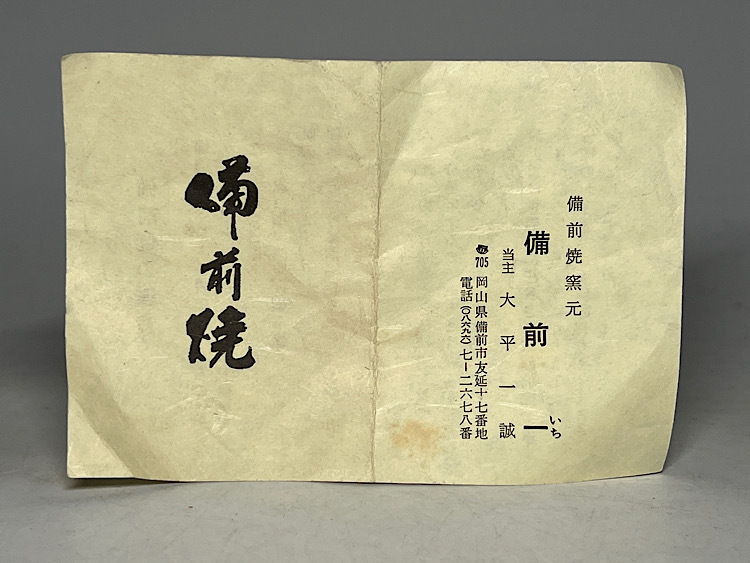 備前焼窯元
備前一
いち
当主 大平一誠
705 岡山県備前市友延十七番地
電話(〇八六九六)七-二六七八番
備前焼